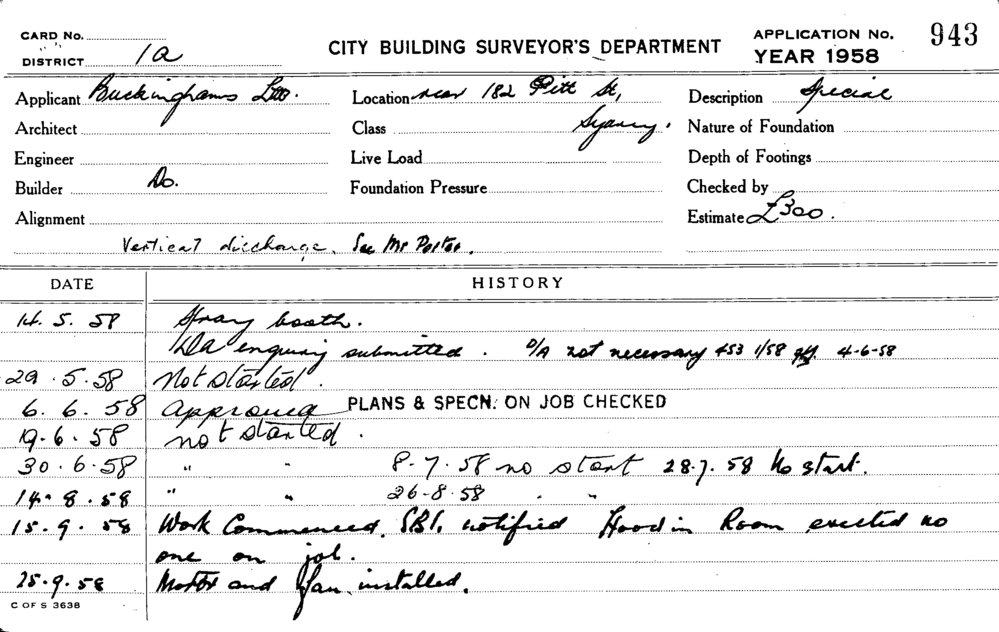 CARD No.
DISTRICT 1a
CITY BUILDING SURVEYOR'S DEPARTMENT
APPLICATION No. 943
YEAR 1958
Applicant Buckinghams Ltd. Location near 182 Pitt St, Description Special
Architect Class Sydney. Nature of Foundation
Engineer Live Load Depth of Footings
Builder Do. Foundation Pressure Checked by
Alignment Estimate £300.
Vertical discharge. See Mr Porter.
DATE HISTORY
14. 5. 58 Spray booth.
Da enquiry submitted. D/A not necessary 453 1/58 4-6-58
29. 5. 58 Not started.
6. 6. 58 Approved PLANS & SPECN. ON JOB CHECKED
19. 6. 58 not started.
30. 6. 58 " " 8-7.58 no start 28.7.58 No start.
14. 8. 58 " " 26-8.58 " "
15. 9. 58 Work Commenced. SBI. notified Hood in Room erected no
one on job.
25. 9. 58 Motor and fan installed.
C OF S 3638